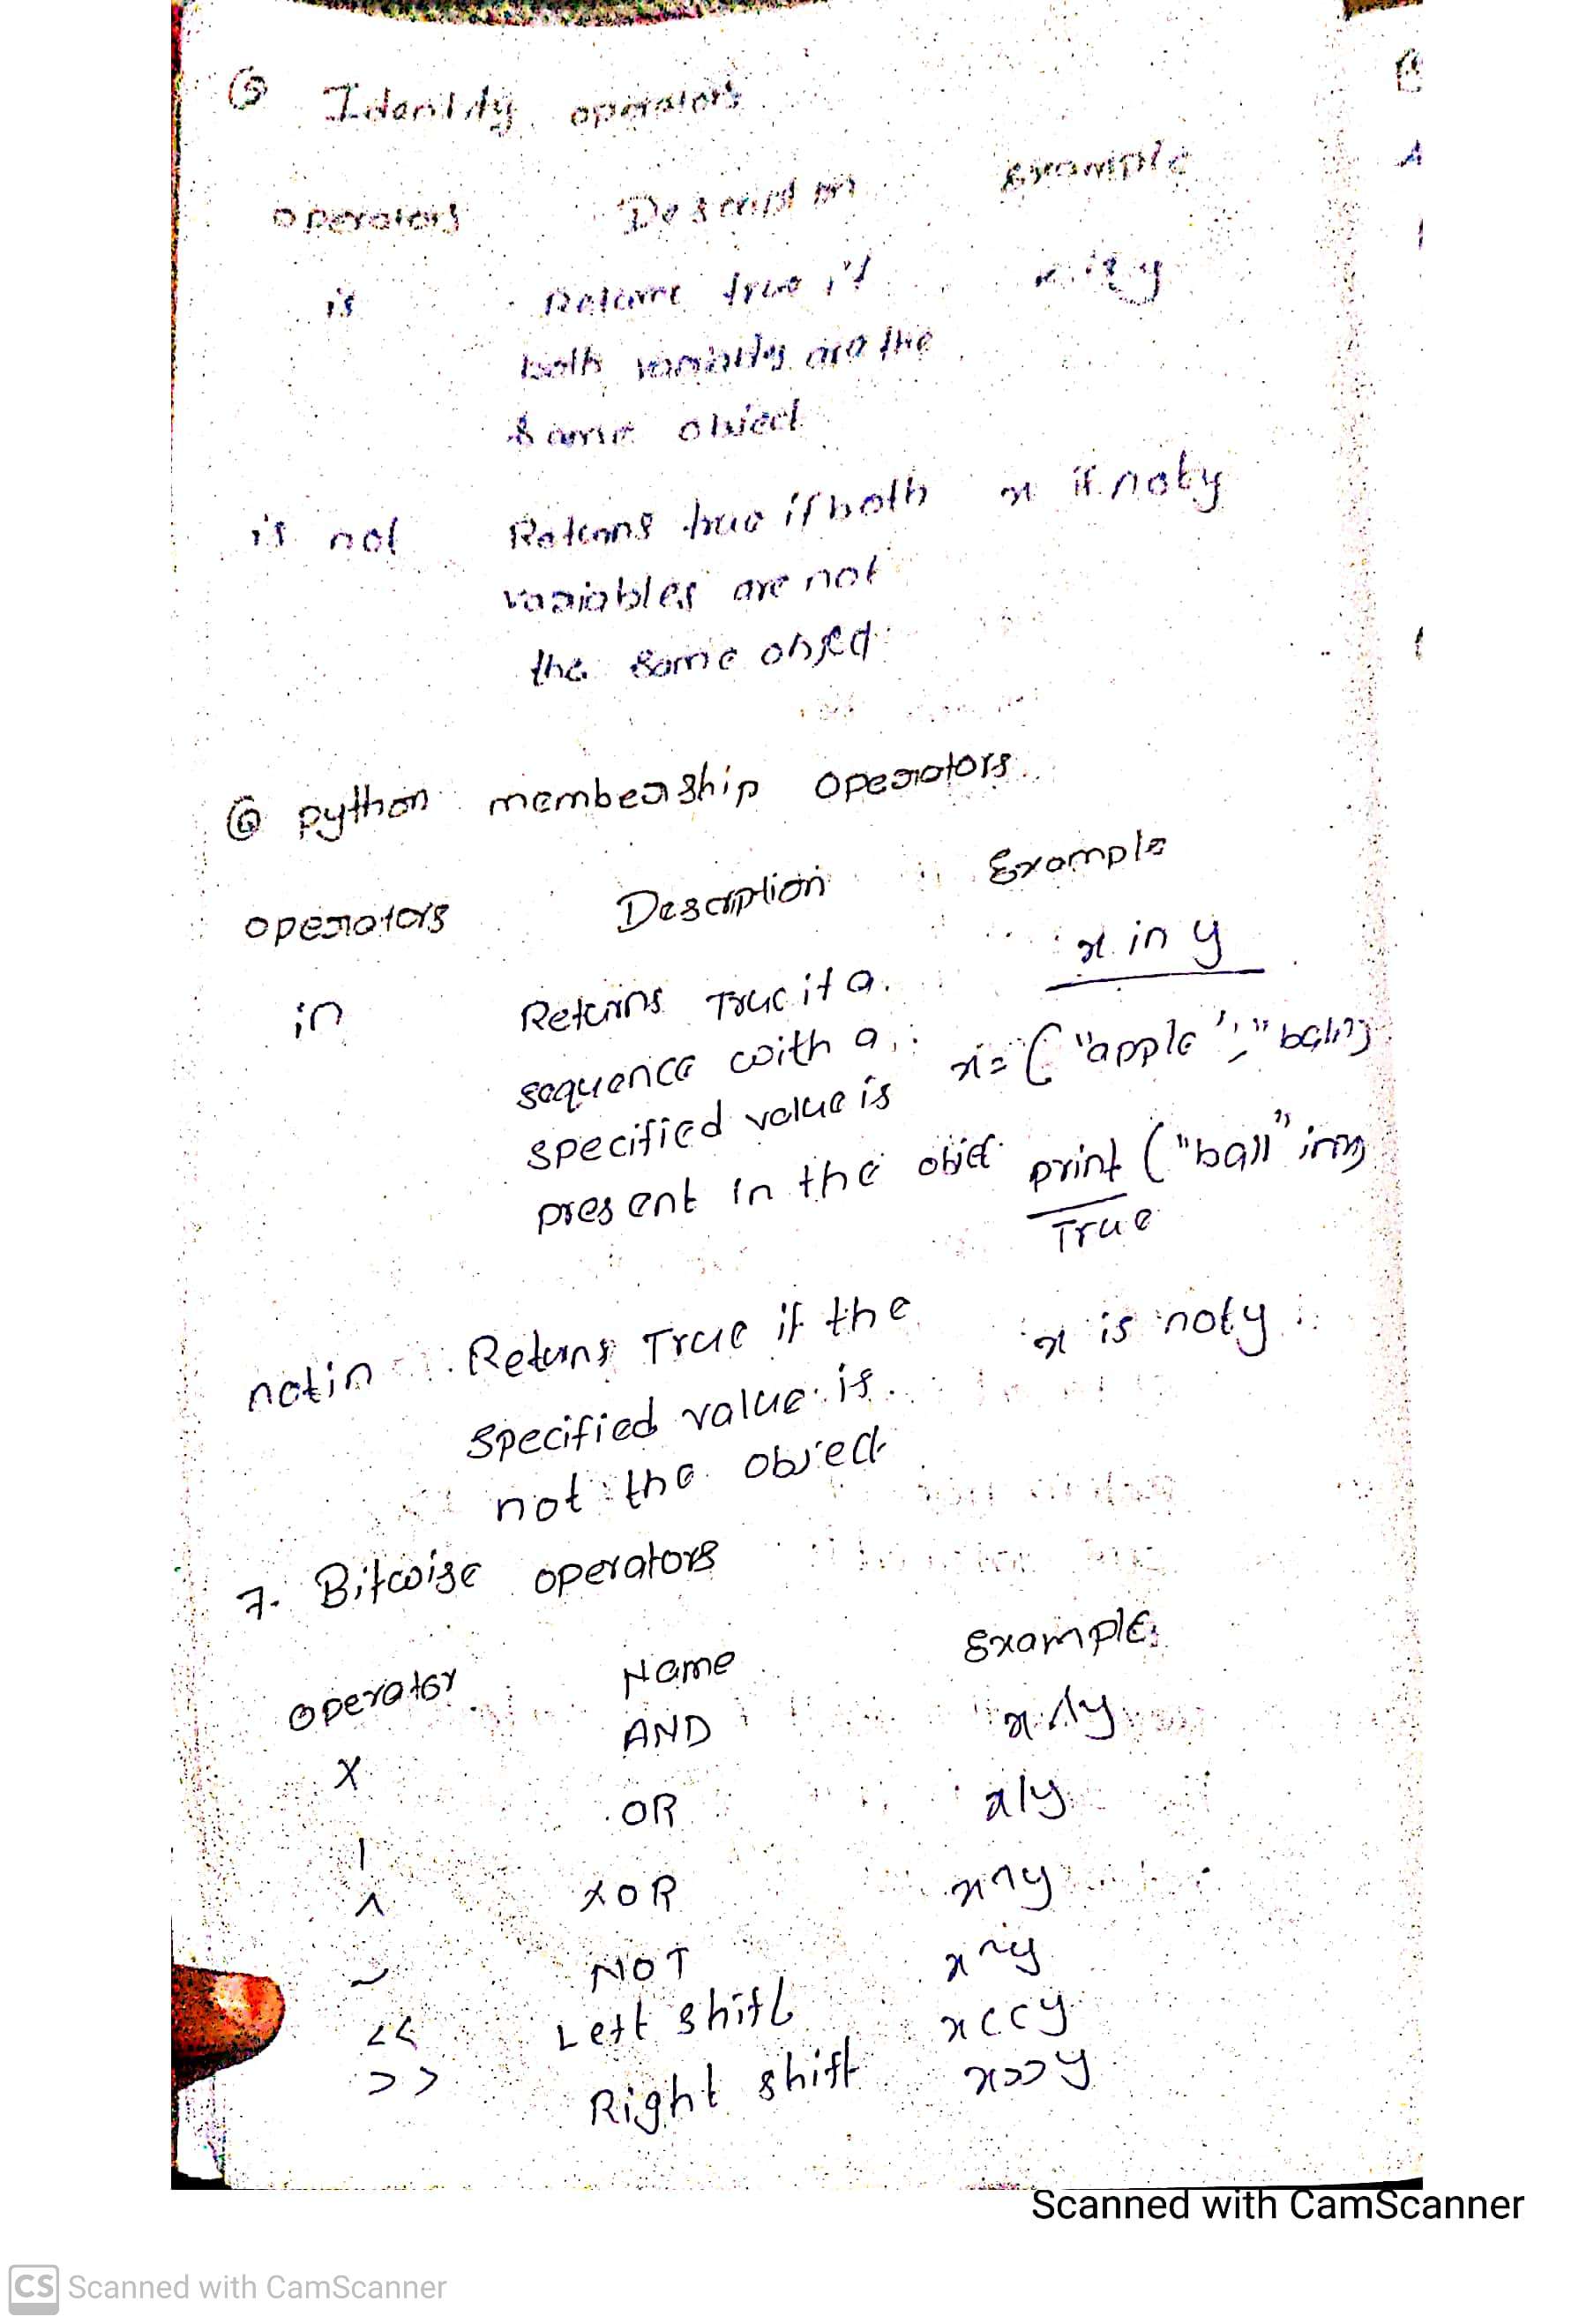 ⑥ Identity operators
operators Description Example
is Returns true if x is y
both variables are the
same object
is not Returns true if both x is not y
variables are not
the same object
⑥ python membership operators
operators Description Example
in Returns True if a x in y
sequence with a x = ("apple", "ball")
specified value is
present in the object print ("ball" in x)
True
not in Returns True if the x is not y
specified value is
not the object
7. Bitwise operators
operator Name Example
AND
X OR x|y
|
^ XOR x^y
~ NOT x~y
<< Left shift x<<y
>> Right shift x>>y
Scanned with CamScanner
CS Scanned with CamScanner